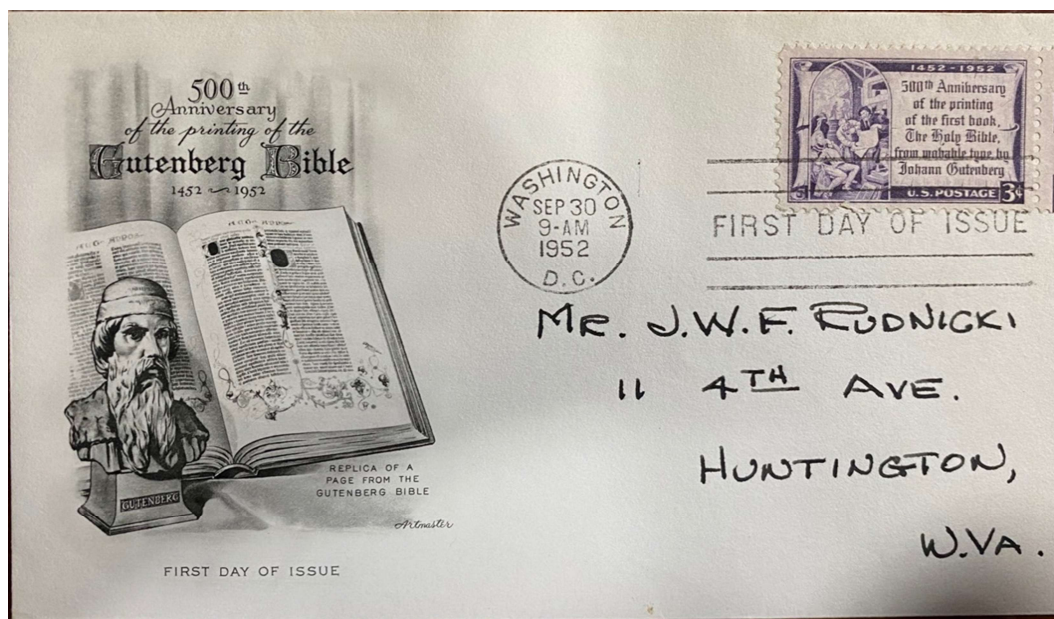 500th
Anniversary
of the printing of the
Gutenberg Bible
1452 ~ 1952
GUTENBERG
REPLICA OF A
PAGE FROM THE
GUTENBERG BIBLE
Artmaster
FIRST DAY OF ISSUE
WASHINGTON
SEP 30
9-AM
1952
D.C.
1452-1952
500th Anniversary
of the printing
of the first book,
The Holy Bible,
from movable type, by
Johann Gutenberg
U.S. POSTAGE 3¢
FIRST DAY OF ISSUE
MR. J.W.F. RUDNICKI
11 4TH AVE.
HUNTINGTON,
W.VA.